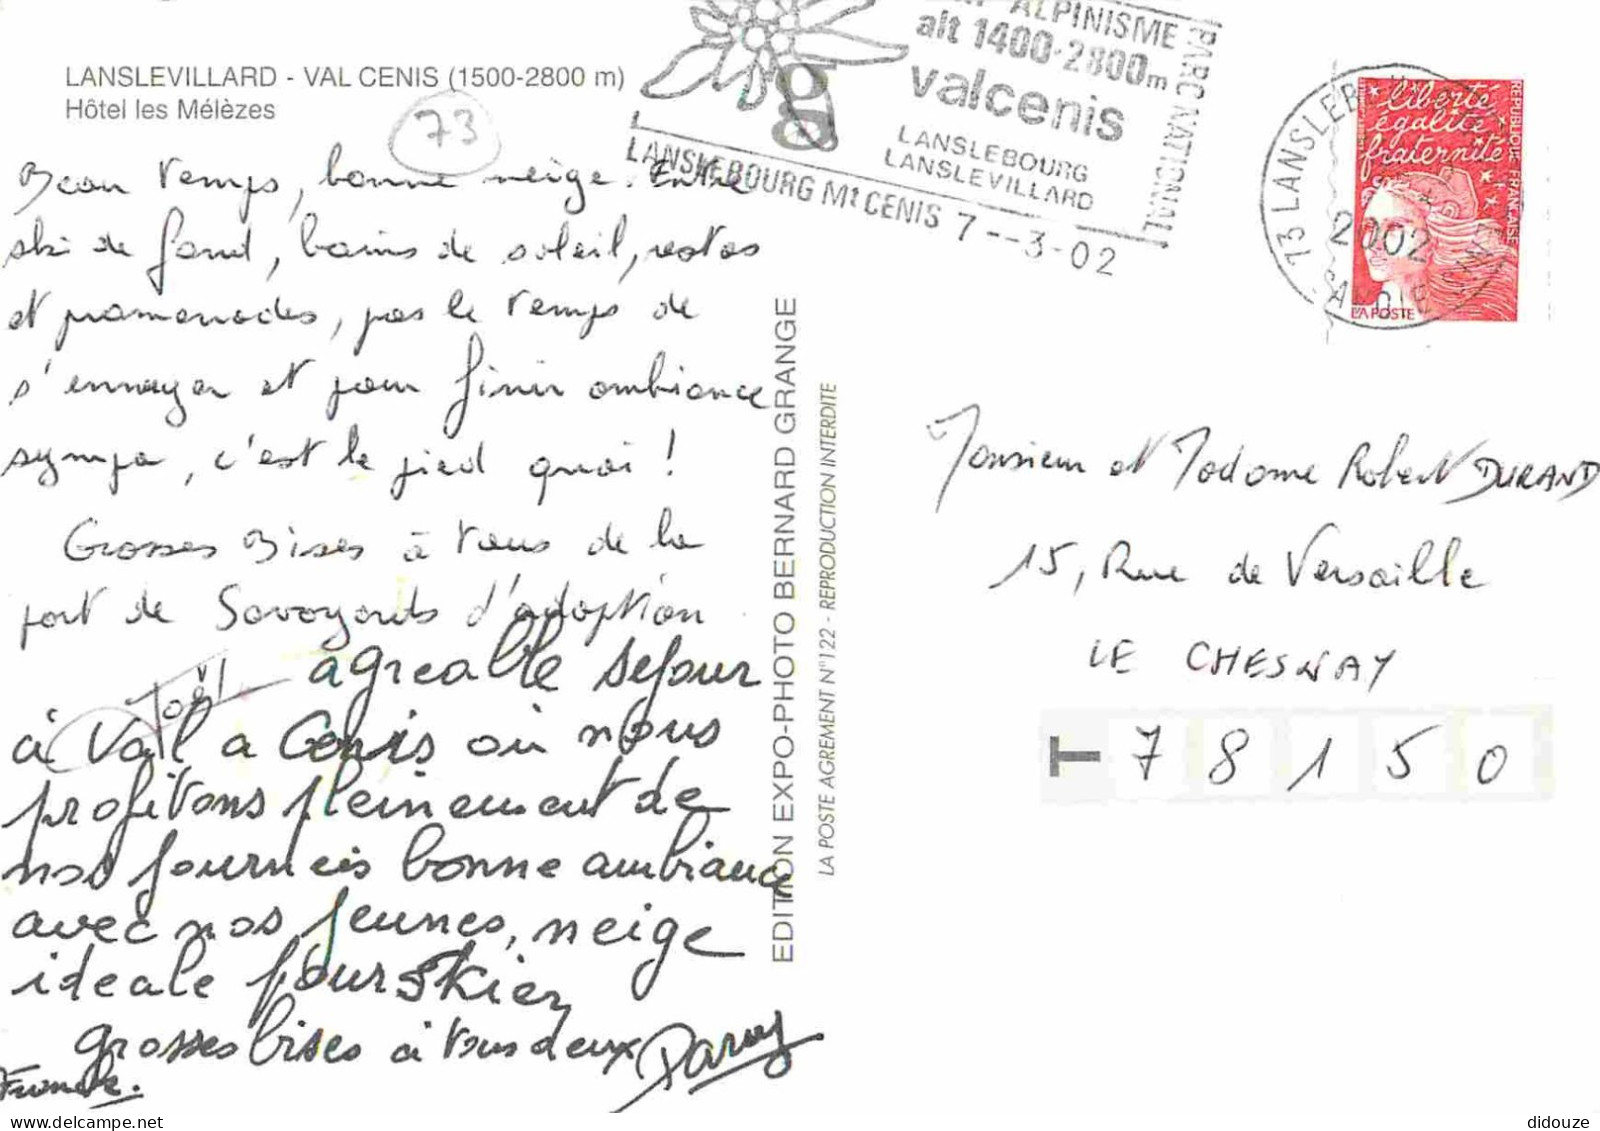 LANSLEVILLARD - VAL CENIS (1500-2800 m)
Hôtel les Mélèzes
73
ALPINISME
alt 1400-2800m
valcenis
LANSLEBOURG
LANSLEVILLARD
PARC NATIONAL
LANSLEBOURG Mt CENIS 7--3-02
2002
liberté
égalité
fraternité
RÉPUBLIQUE FRANÇAISE
LA POSTE
Beau temps, bonne neige. Entre
ski de fond, bains de soleil, restos
et promenades, pas le temps de
s'ennuyer et pour finir ambiance
sympa, c'est le pied quoi !
Grosses Bises à tous de la
part de Savoyards d'adoption
Joël
agreable sejour
à Val a Cenis où nous
profitons pleinement de
nos journeés bonne ambiance
avec nos jeunes, neige
ideale pour skier
grosses bises à tous deux
EDITION EXPO-PHOTO BERNARD GRANGE
LA POSTE AGREMENT N°122 - REPRODUCTION INTERDITE
Monsieur et Madame Robert DURAND
15, Rue de Versaille
LE CHESNAY
T 78150
didouze